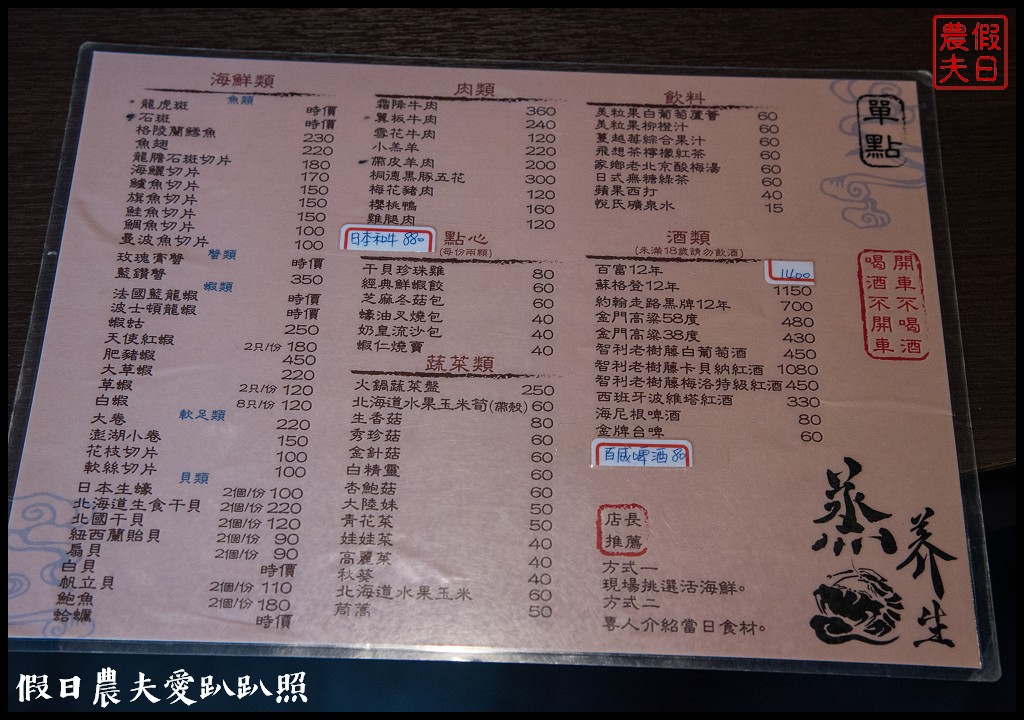 假日
農夫
單點
海鮮類
魚類
龍虎斑 時價
石斑 時價
格陵蘭鱈魚 230
魚翅 220
龍膽石斑切片 180
海鱺切片 170
鱸魚切片 150
旗魚切片 150
鮭魚切片 150
鯛魚切片 100
曼波魚切片 100
蟹類
玫瑰膏蟹 時價
藍鑽蟹 350
蝦類
法國藍龍蝦 時價
波士頓龍蝦 時價
蝦姑 250
天使紅蝦 2只/份 180
肥豬蝦 450
大草蝦 220
草蝦 2只/份 120
白蝦 8只/份 120
軟足類
大卷 220
澎湖小卷 150
花枝切片 100
軟絲切片 100
貝類
日本生蠔 2個/份 100
北海道生食干貝 2個/份 220
北國干貝 2個/份 120
紐西蘭貽貝 2個/份 90
扇貝 2個/份 90
白貝 時價
帆立貝 2個/份 110
鮑魚 2個/份 180
蛤蠣 時價
肉類
霜降牛肉 360
翼板牛肉 240
雪花牛肉 120
小羔羊 220
帶皮羊肉 200
桐德黑豚五花 300
梅花豬肉 120
櫻桃鴨 160
雞腿肉 120
日本和牛 880
點心
(每份兩顆)
干貝珍珠雞 80
經典鮮蝦餃 60
芝麻冬菇包 60
蠔油叉燒包 40
奶皇流沙包 40
蝦仁燒賣 40
蔬菜類
火鍋蔬菜盤 250
北海道水果玉米筍(帶殼) 60
生香菇 80
秀珍菇 60
金針菇 60
白精靈 60
杏鮑菇 60
大陸妹 50
青花菜 50
娃娃菜 40
高麗菜 40
秋葵 40
北海道水果玉米 60
茼蒿 50
飲料
美粒果白葡萄蘆薈 60
美粒果柳橙汁 60
蔓越莓綜合果汁 60
飛想茶檸檬紅茶 60
家鄉老北京酸梅湯 60
日式無糖綠茶 60
蘋果西打 40
悅氏礦泉水 15
酒類
(未滿18歲請勿飲酒)
百富12年 1400
蘇格登12年 1150
約翰走路黑牌12年 700
金門高粱58度 480
金門高粱38度 430
智利老樹藤白葡萄酒 450
智利老樹藤卡貝納紅酒 1080
智利老樹藤梅洛特級紅酒 450
西班牙波維塔紅酒 330
海尼根啤酒 80
金牌台啤 60
百威啤酒 80
開車不喝酒
喝酒不開車
店長
推薦
方式一
現場挑選活海鮮。
方式二
專人介紹當日食材。
蒸
养生
假日農夫愛趴趴照